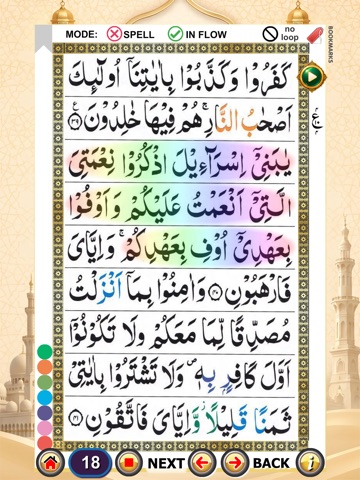 MODE: SPELL IN FLOW no loop
BOOKMARKS
كَفَرُوْا وَكَذَّبُوْا بِاٰيٰتِنَاۤ اُولٰٓئِكَ
اَصْحٰبُ النَّارِ ۚ هُمْ فِيْهَا خٰلِدُوْنَ ﴿۳۹﴾
يٰبَنِىْۤ اِسْرَآءِيْلَ اذْكُرُوْا نِعْمَتِىَ
الَّتِىْۤ اَنْعَمْتُ عَلَيْكُمْ وَاَوْفُوْا
بِعَهْدِىْۤ اُوْفِ بِعَهْدِكُمْ ۚ وَاِيَّاىَ
فَارْهَبُوْنِ ﴿۴۰﴾ وَاٰمِنُوْا بِمَاۤ اَنْزَلْتُ
مُصَدِّقًا لِّمَا مَعَكُمْ وَلَا تَكُوْنُوْۤا
اَوَّلَ كَافِرٍۭ بِهٖ ۖ وَلَا تَشْتَرُوْا بِاٰيٰتِىْ
ثَمَنًا قَلِيْلًا وَّاِيَّاىَ فَاتَّقُوْنِ ﴿۴۱﴾
18 NEXT BACK i